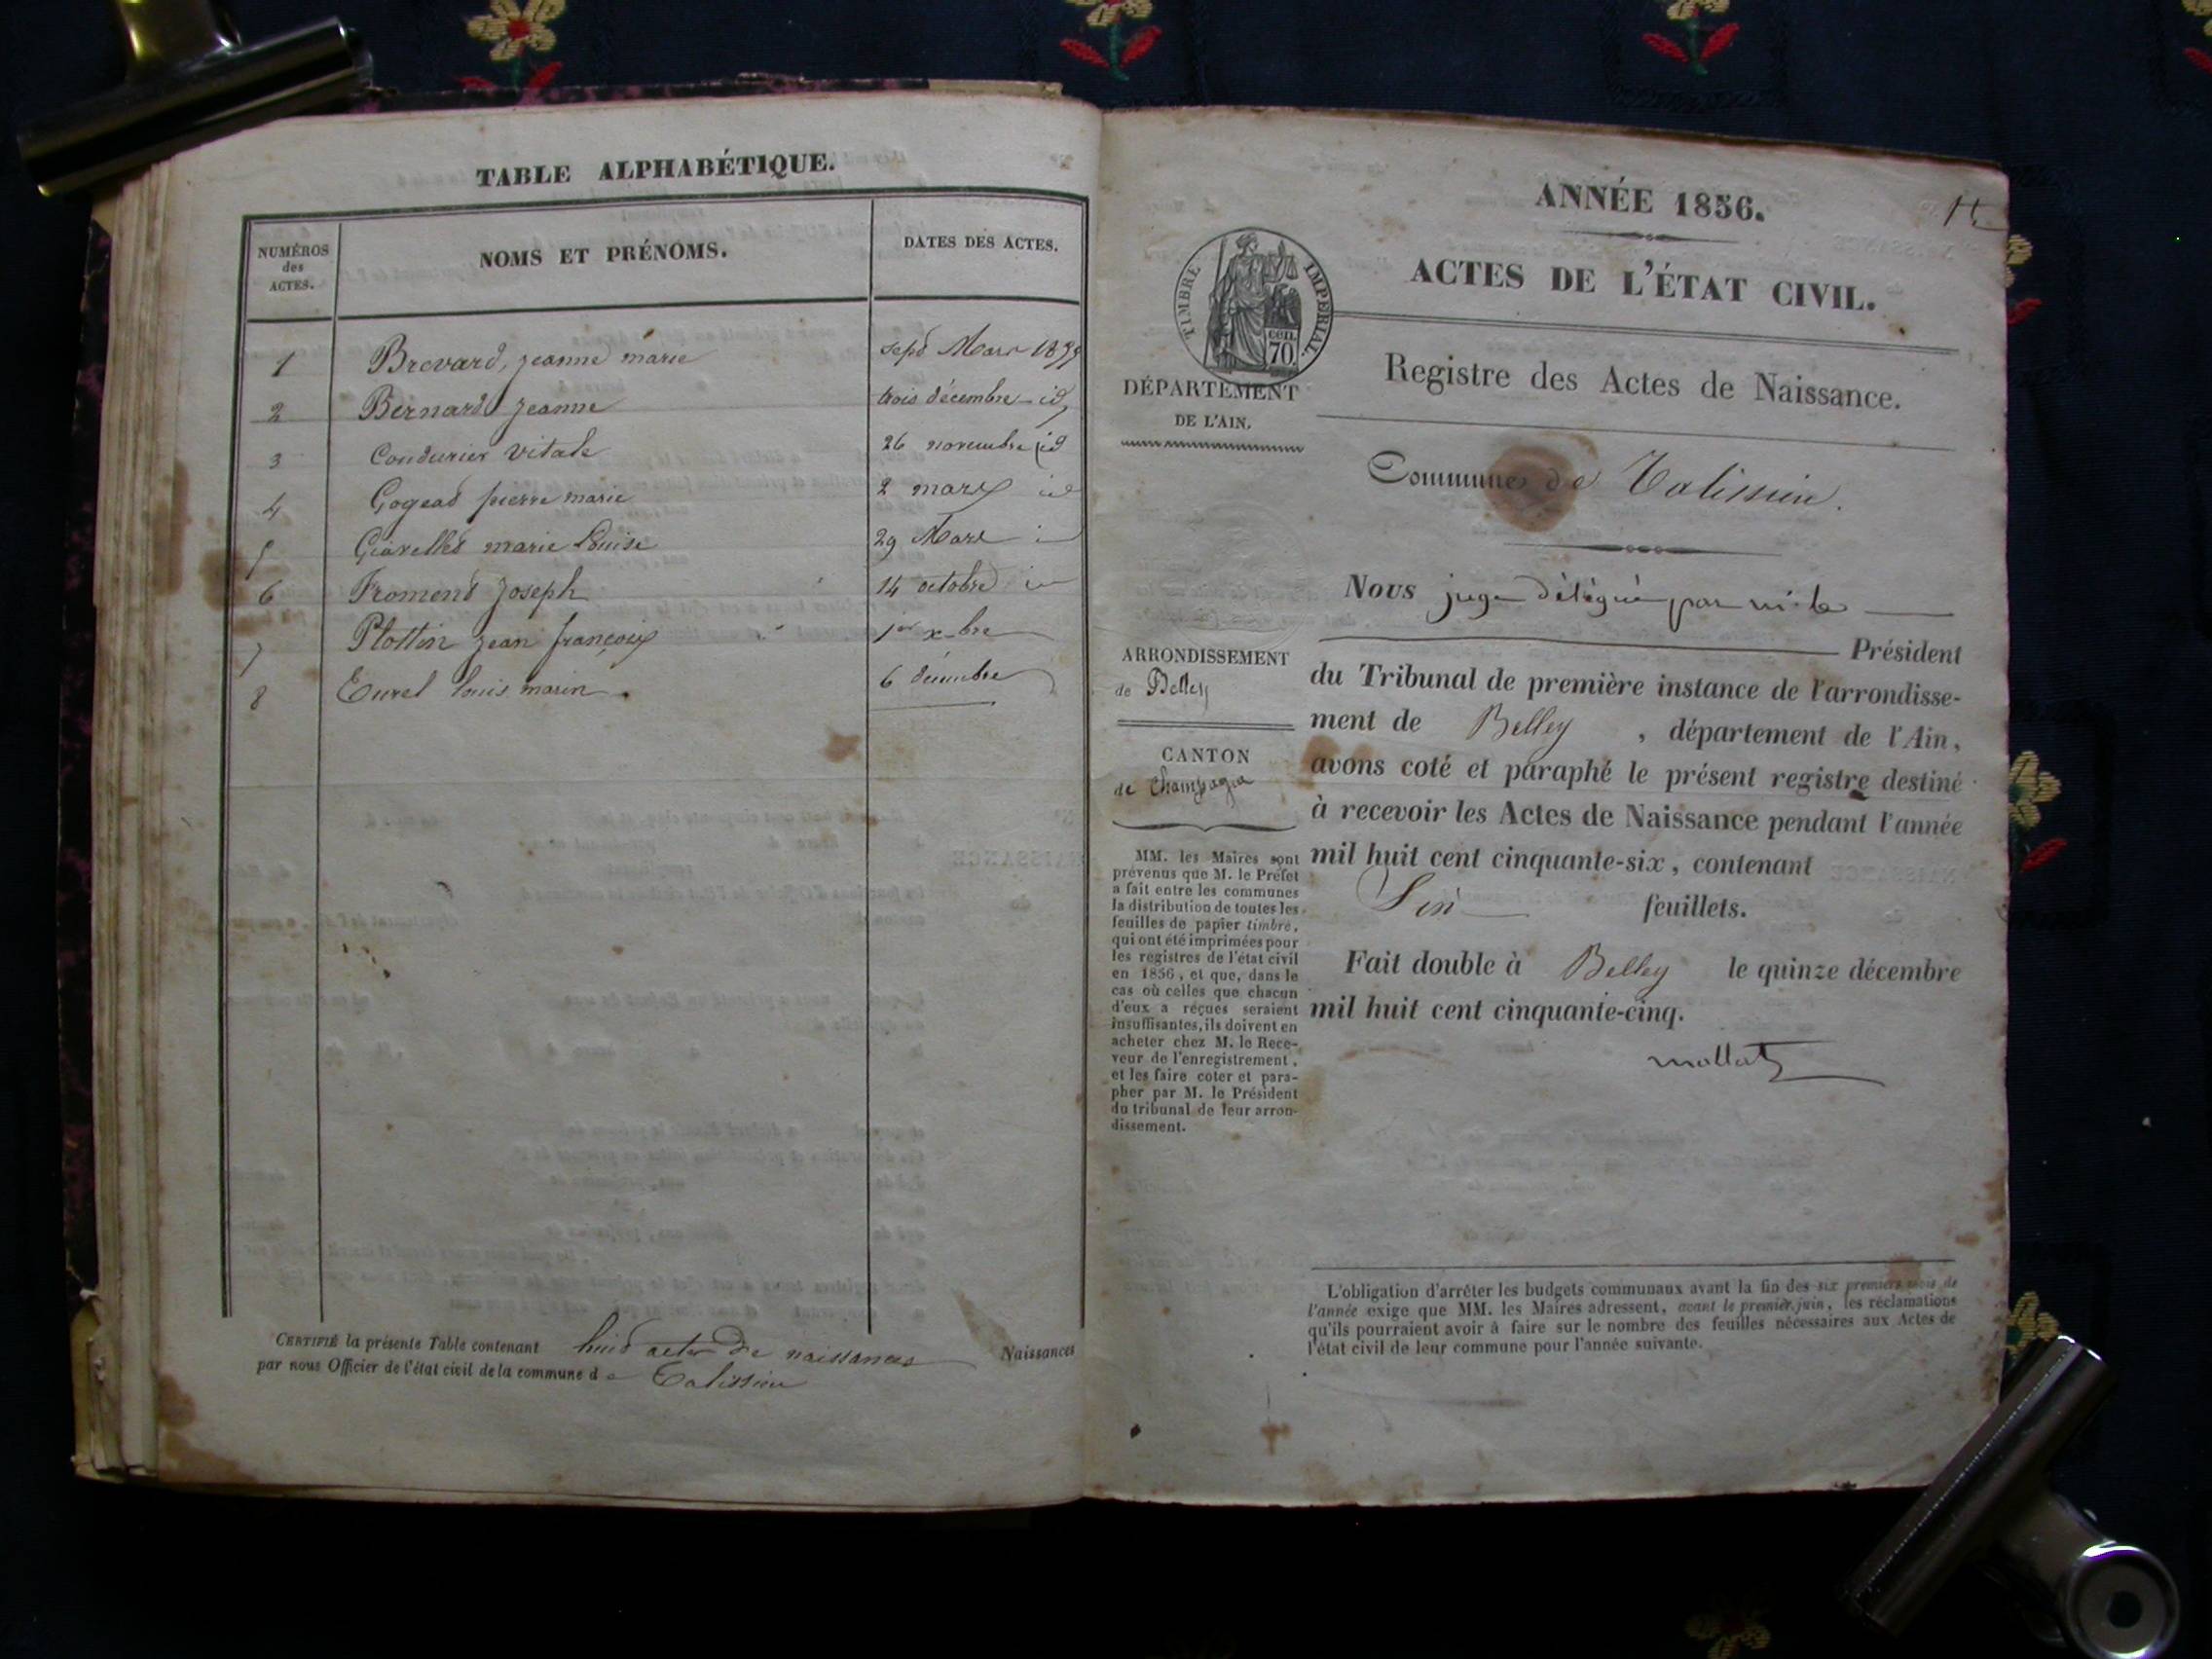 TABLE ALPHABÉTIQUE.
NUMÉROS
des
ACTES.
NOMS ET PRÉNOMS.
DATES DES ACTES.
1 Brevard, jeanne marie sept Mars 1855
2 Bernard jeanne trois décembre id
3 Condurier vitale 26 novembre id
4 Gogead pierre marie 2 mars id
5 marie Louise 29 Mars
6 Fromend Joseph 14 octobre
7 Plottin jean françois 1er xbre
8 louis marin 6 décembre
CERTIFIÉ la présente Table contenant huid actes de naissances Naissances
par nous Officier de l'état civil de la commune de Talissieu
ANNÉE 1856.
TIMBRE IMPERIAL.
CEN.
70
ACTES DE L'ÉTAT CIVIL.
Registre des Actes de Naissance.
DÉPARTEMENT
DE L'AIN.
Commune de Talissieu.
Nous juge délégué par mr le
Président
ARRONDISSEMENT
de Belley
CANTON
de Champagne
du Tribunal de première instance de l'arrondisse-
ment de Belley, département de l'Ain,
avons coté et paraphé le présent registre destiné
à recevoir les Actes de Naissance pendant l'année
mil huit cent cinquante-six, contenant
feuillets.
Fait double à Belley le quinze décembre
mil huit cent cinquante-cinq.
MM. les Maires sont
prévenus que M. le Préfet
a fait entre les communes
la distribution de toutes les
feuilles de papier timbré,
qui ont été imprimées pour
les registres de l'état civil
en 1856, et que, dans le
cas où celles que chacun
d'eux a reçues seraient
insuffisantes, ils doivent en
acheter chez M. le Rece-
veur de l'enregistrement,
et les faire coter et para-
pher par M. le Président
du tribunal de leur arron-
dissement.
L'obligation d'arrêter les budgets communaux avant la fin des six premiers mois de
l'année exige que MM. les Maires adressent, avant le premier juin, les réclamations
qu'ils pourraient avoir à faire sur le nombre des feuilles nécessaires aux Actes de
l'état civil de leur commune pour l'année suivante.